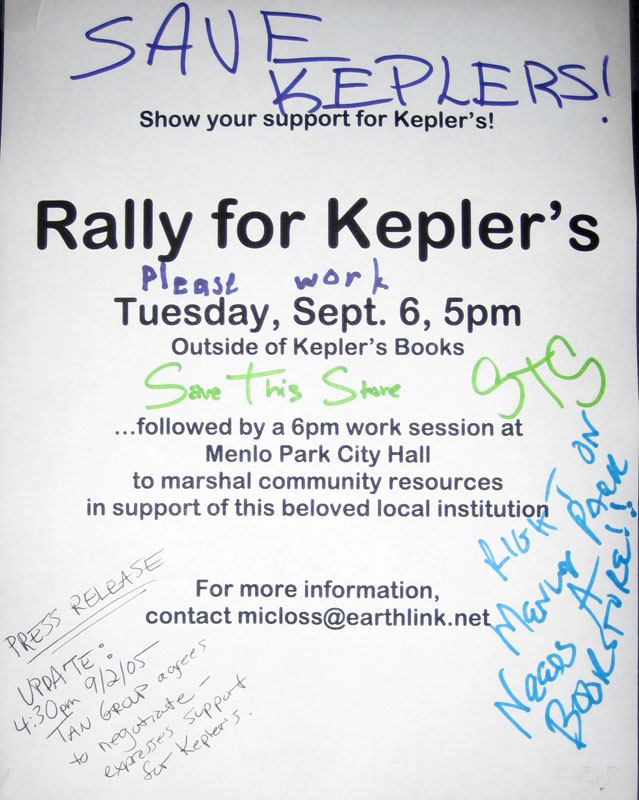 SAVE
KEPLERS!
Show your support for Kepler's!
Rally for Kepler's
Please work
Tuesday, Sept. 6, 5pm
Outside of Kepler's Books
Save This Store
STS
...followed by a 6pm work session at
Menlo Park City Hall
to marshal community resources
in support of this beloved local institution
RIGHT ON
MENLO PARK
NEEDS A
BOOKSTORE!!
For more information,
contact micloss@earthlink.net
PRESS RELEASE
UPDATE:
4:30pm 9/2/05
TAN GROUP agrees
to negotiate –
expresses support
for Kepler's.